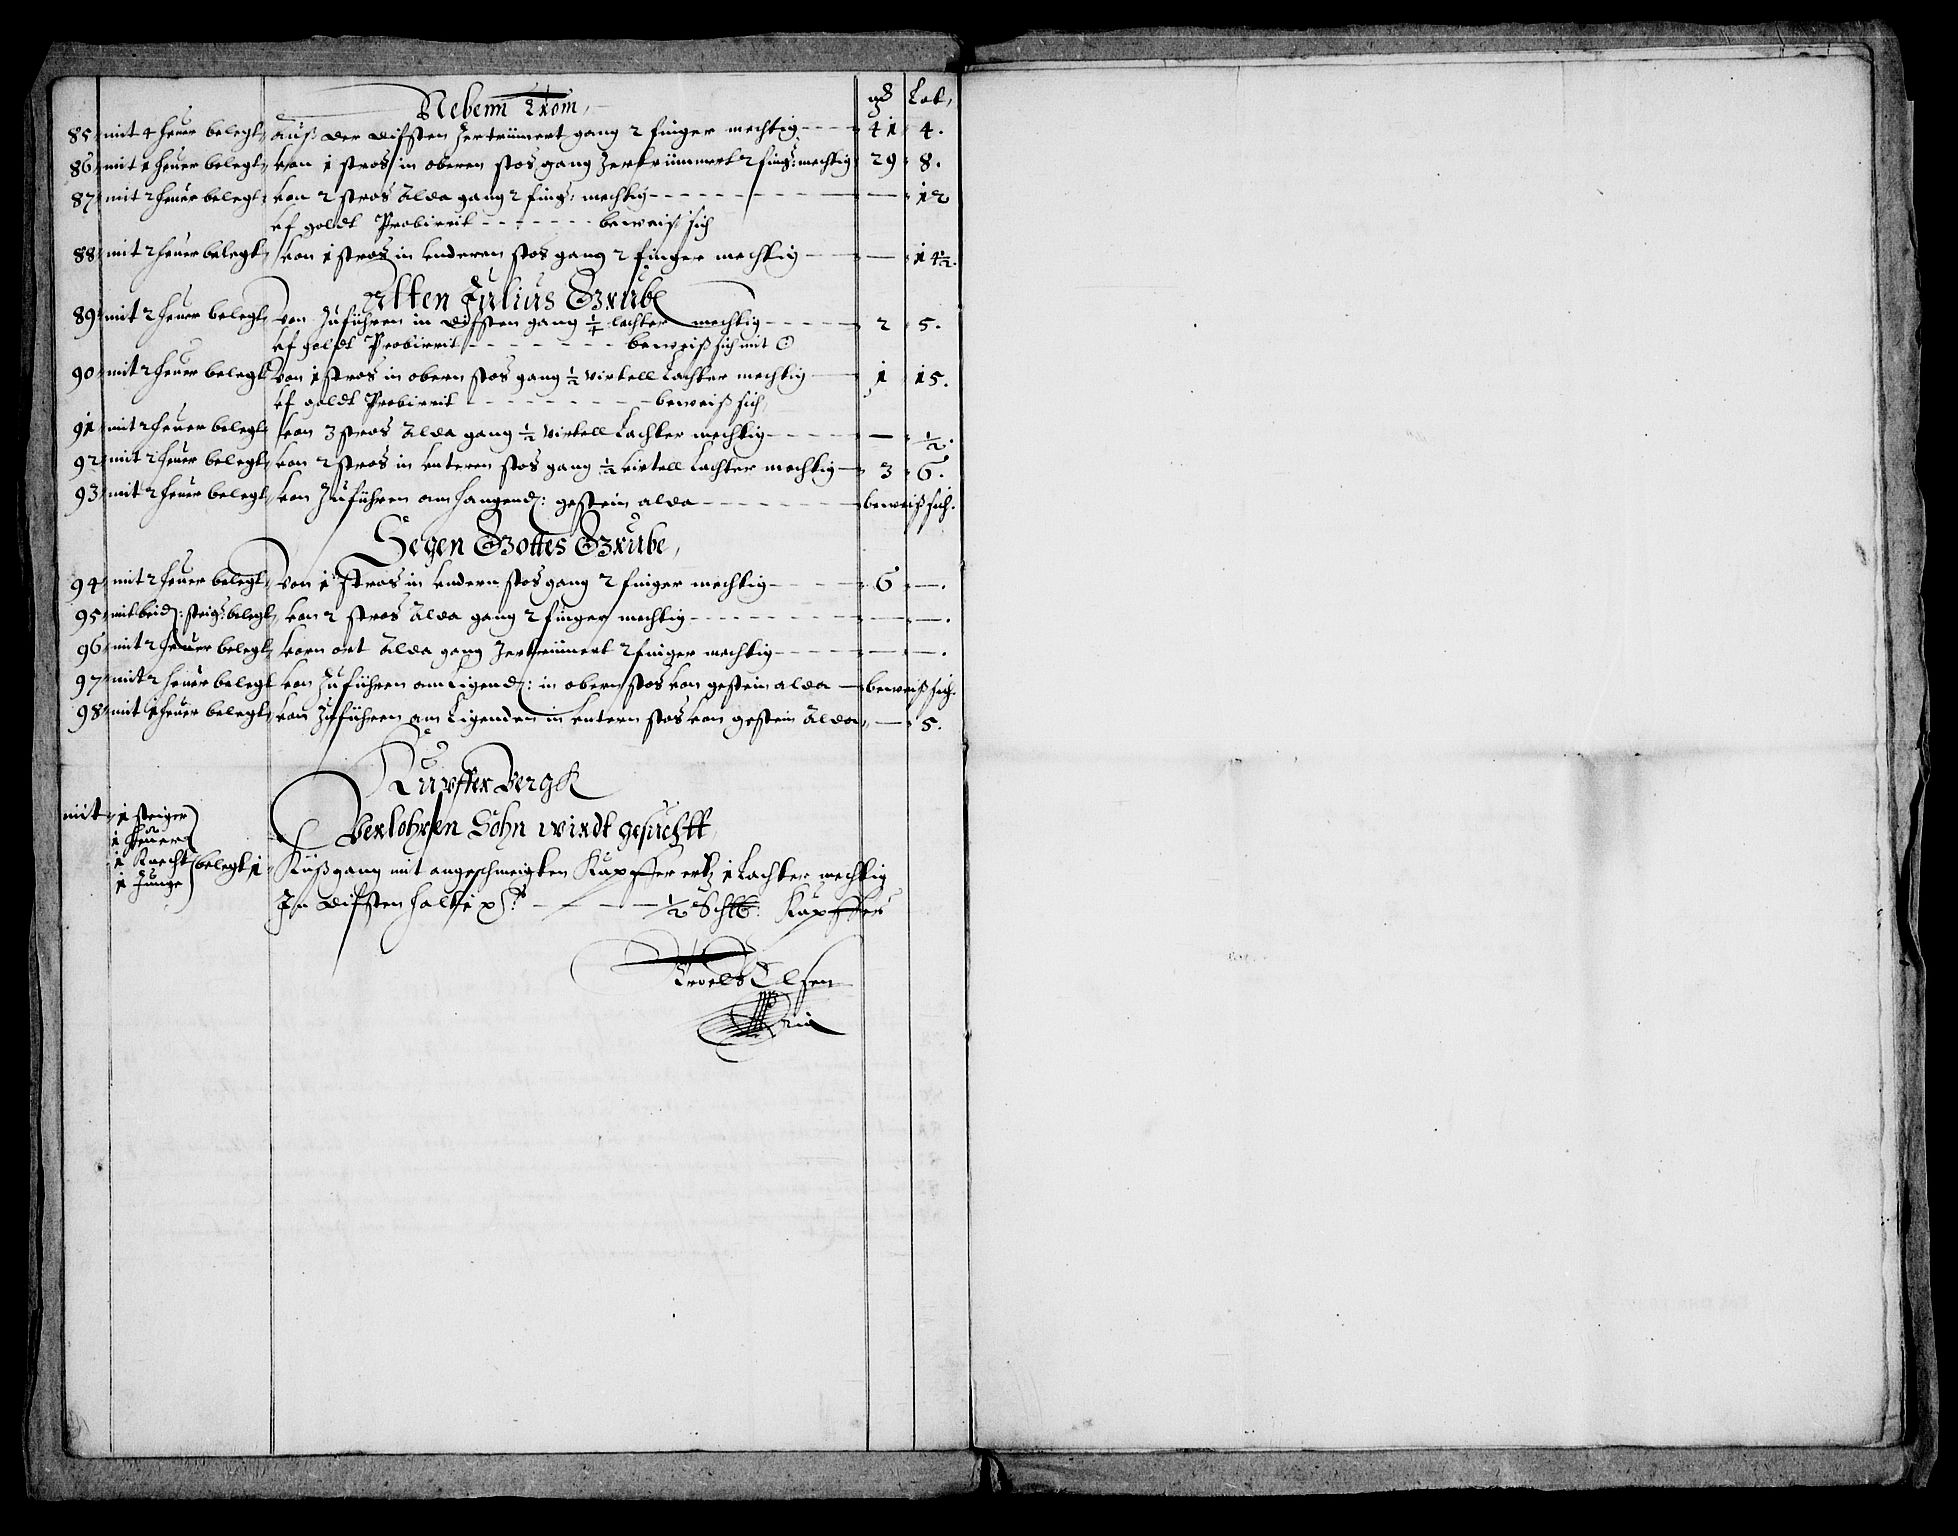 Nebenn Trom, mk Lot,
85, mit 4 heuer belegt, auß der diffsten Zertrümert gang 2 finger mechtig --- 41, 4.
86, mit 1 heuer belegt, von 1 stros in oberen stos gang Zertrümmert 2 fing: mechtig 29, 8.
87, mit 2 heuer belegt, von 2 stros Alda gang 2 fing: mechtig --- — 12
vf goldt Probirrit --- beweiß sich
88, mit 2 heuer belegt, von 1 stros in vnderen stos gang 2 finger mechtig --- — 14½.
Alten Julius Grube
89, mit 2 heuer belegt, von Zuführen in diffsten gang ¼ lachter mechtig --- 2, 5.
vf goldt Probirrit --- beweiß sich mit ☉
90, mit 2 heuer belegt, von 1 stros in obern stos gang ½ virtell Lachter mechtig --- 1, 15.
vf goldt Probirrit --- beweiß sich,
91, mit 2 heuer belegt, von 3 stros Alda gang ½ virtell Lachter mechtig --- —, ½.
92, mit 2 heuer belegt, von 2 stros in vnteren stos gang ½ virtell Lachter mechtig — 3, 6.
93, mit 2 heuer belegt, von Zuführen am hangend: gestein alda --- beweiß sich.
Segen Gottes Grube,
94, mit 2 heuer belegt, von 1 stros in vndern stos gang 2 finger mechtig --- 6, —.
95, mit beid: steig: belegt, von 2 stros Alda gang 2 finger mechtig --- —, —.
96, mit 2 heuer belegt, vorn ort Alda gang Zertrümert 2 finger mechtig --- —, —.
97, mit 2 heuer belegt von Zuführen am Ligend: in obern stos von gestein alda — beweiß sich.
98, mit 1 heuer belegt, von Zuführen am Ligenden in vntern stos von gestein Alda, —, 5.
Kupffer Bergk
Verlohren Sohn wirdt gesucht,
mit, 1 steiger
1 heuer
1 Knecht belegt 1,
1 Junge
Küßgang mit angeschmeigten Kupffer ertz 1 Lachter mechtig
In diffsten halt 1 --- ½ Kupffers
Olsen